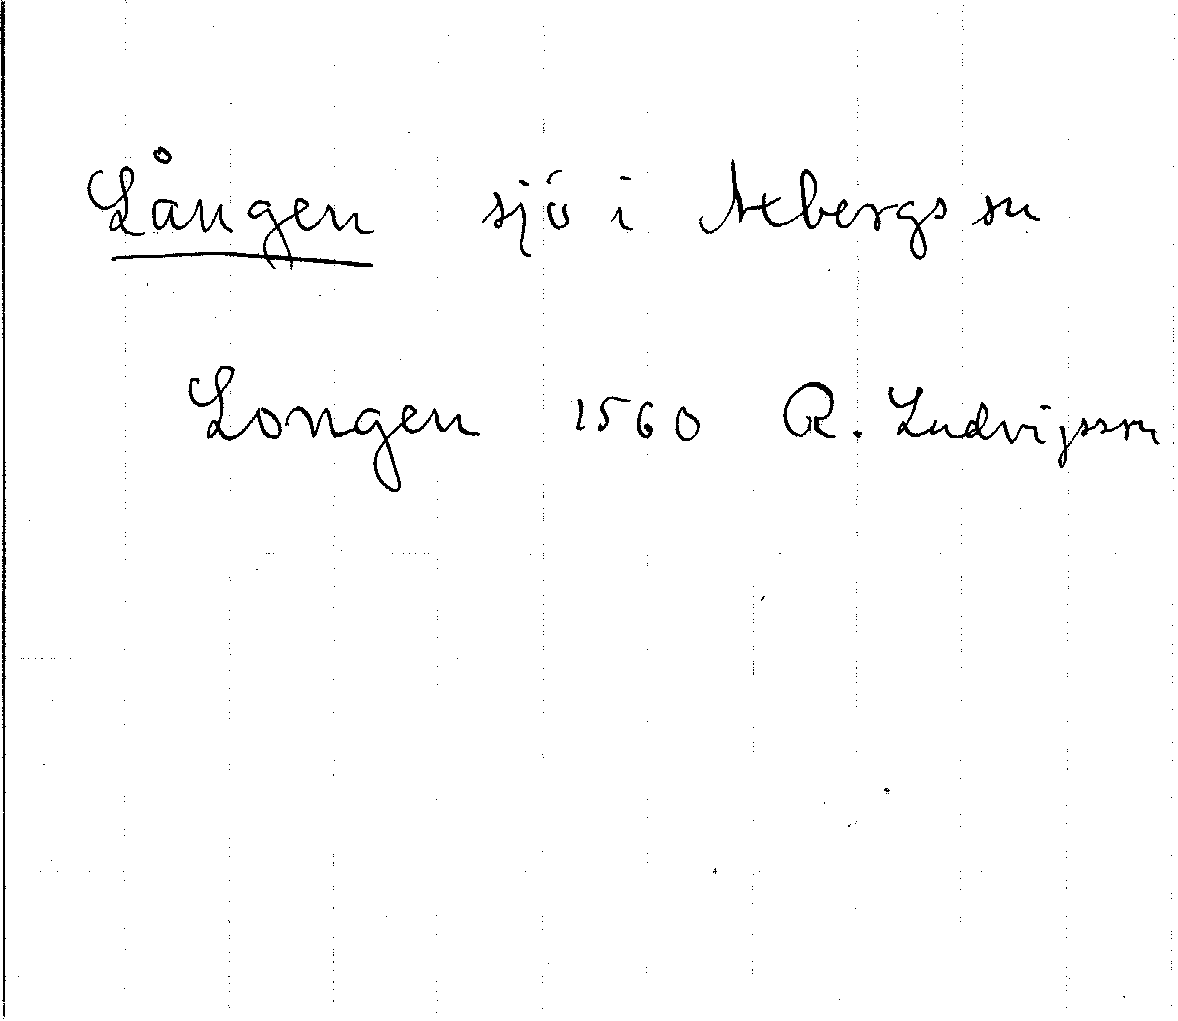 Lången sjö i Axbergs sn
Longen 1560 R. Ludvigsson